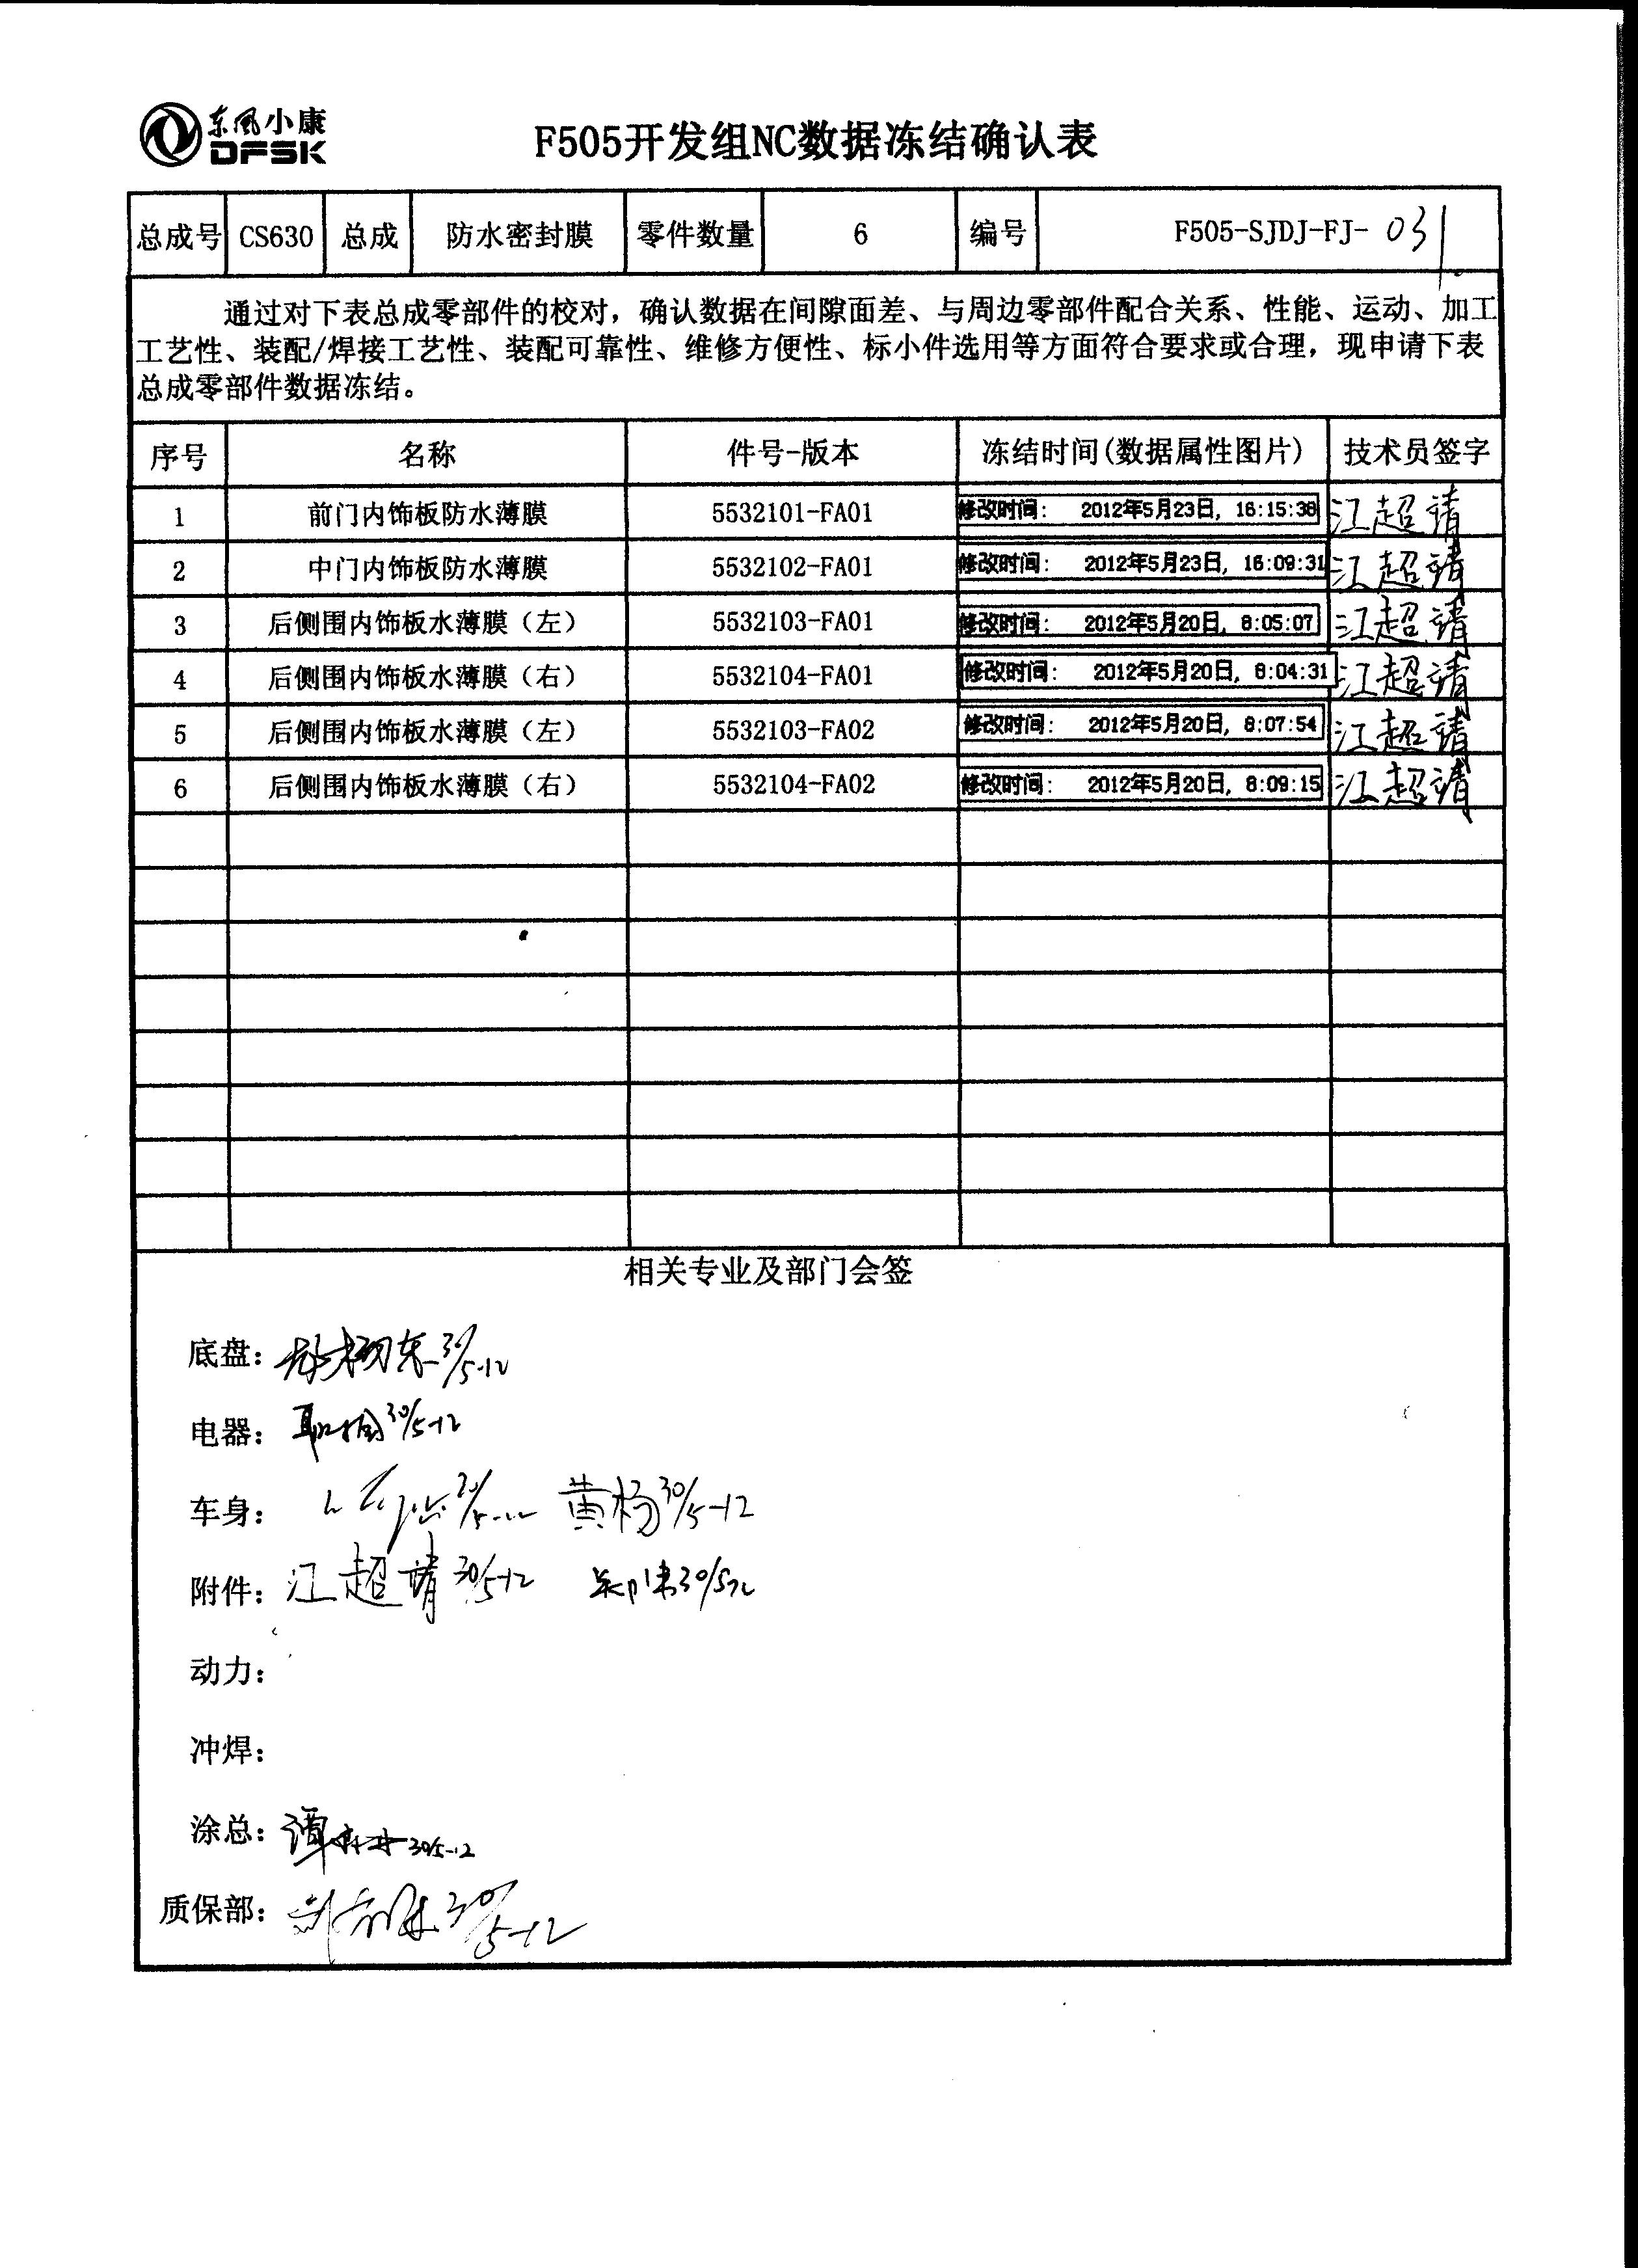 东风小康
DFSK
F505开发组NC数据冻结确认表
总成号 CS630 总成 防水密封膜 零件数量 6 编号 F505-SJDJ-FJ- 031
通过对下表总成零部件的校对，确认数据在间隙面差、与周边零部件配合关系、性能、运动、加工
工艺性、装配/焊接工艺性、装配可靠性、维修方便性、标小件选用等方面符合要求或合理，现申请下表
总成零部件数据冻结。
序号 名称 件号-版本 冻结时间(数据属性图片) 技术员签字
1 前门内饰板防水薄膜 5532101-FA01 修改时间： 2012年5月23日，16:15:38 江超靖
2 中门内饰板防水薄膜 5532102-FA01 修改时间： 2012年5月23日，16:09:31 江超靖
3 后侧围内饰板水薄膜（左） 5532103-FA01 修改时间： 2012年5月20日，8:05:07 江超靖
4 后侧围内饰板水薄膜（右） 5532104-FA01 修改时间： 2012年5月20日，8:04:31 江超靖
5 后侧围内饰板水薄膜（左） 5532103-FA02 修改时间： 2012年5月20日，8:07:54 江超靖
6 后侧围内饰板水薄膜（右） 5532104-FA02 修改时间： 2012年5月20日，8:09:15 江超靖
相关专业及部门会签
底盘： 30/5-12
电器： 30/5-12
车身： 黄杨 30/5-12
附件：江超靖 30/5-12 30/5-12
动力：
冲焊：
涂总： 30/5-12
质保部： 30/5-12